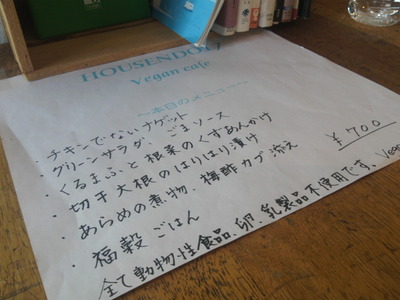 HOUSENDOU
Vegan cafe
～本日のメニュー～
・チキンでないナゲット
・グリーンサラダ、ごまソース
・くるまふと根菜のくずあんかけ
・切干大根のはりはり漬け
・あらめの煮物、梅酢カブ添え
・福穀ごはん
¥700
全て動物性食品、卵、乳製品不使用です。Vegan